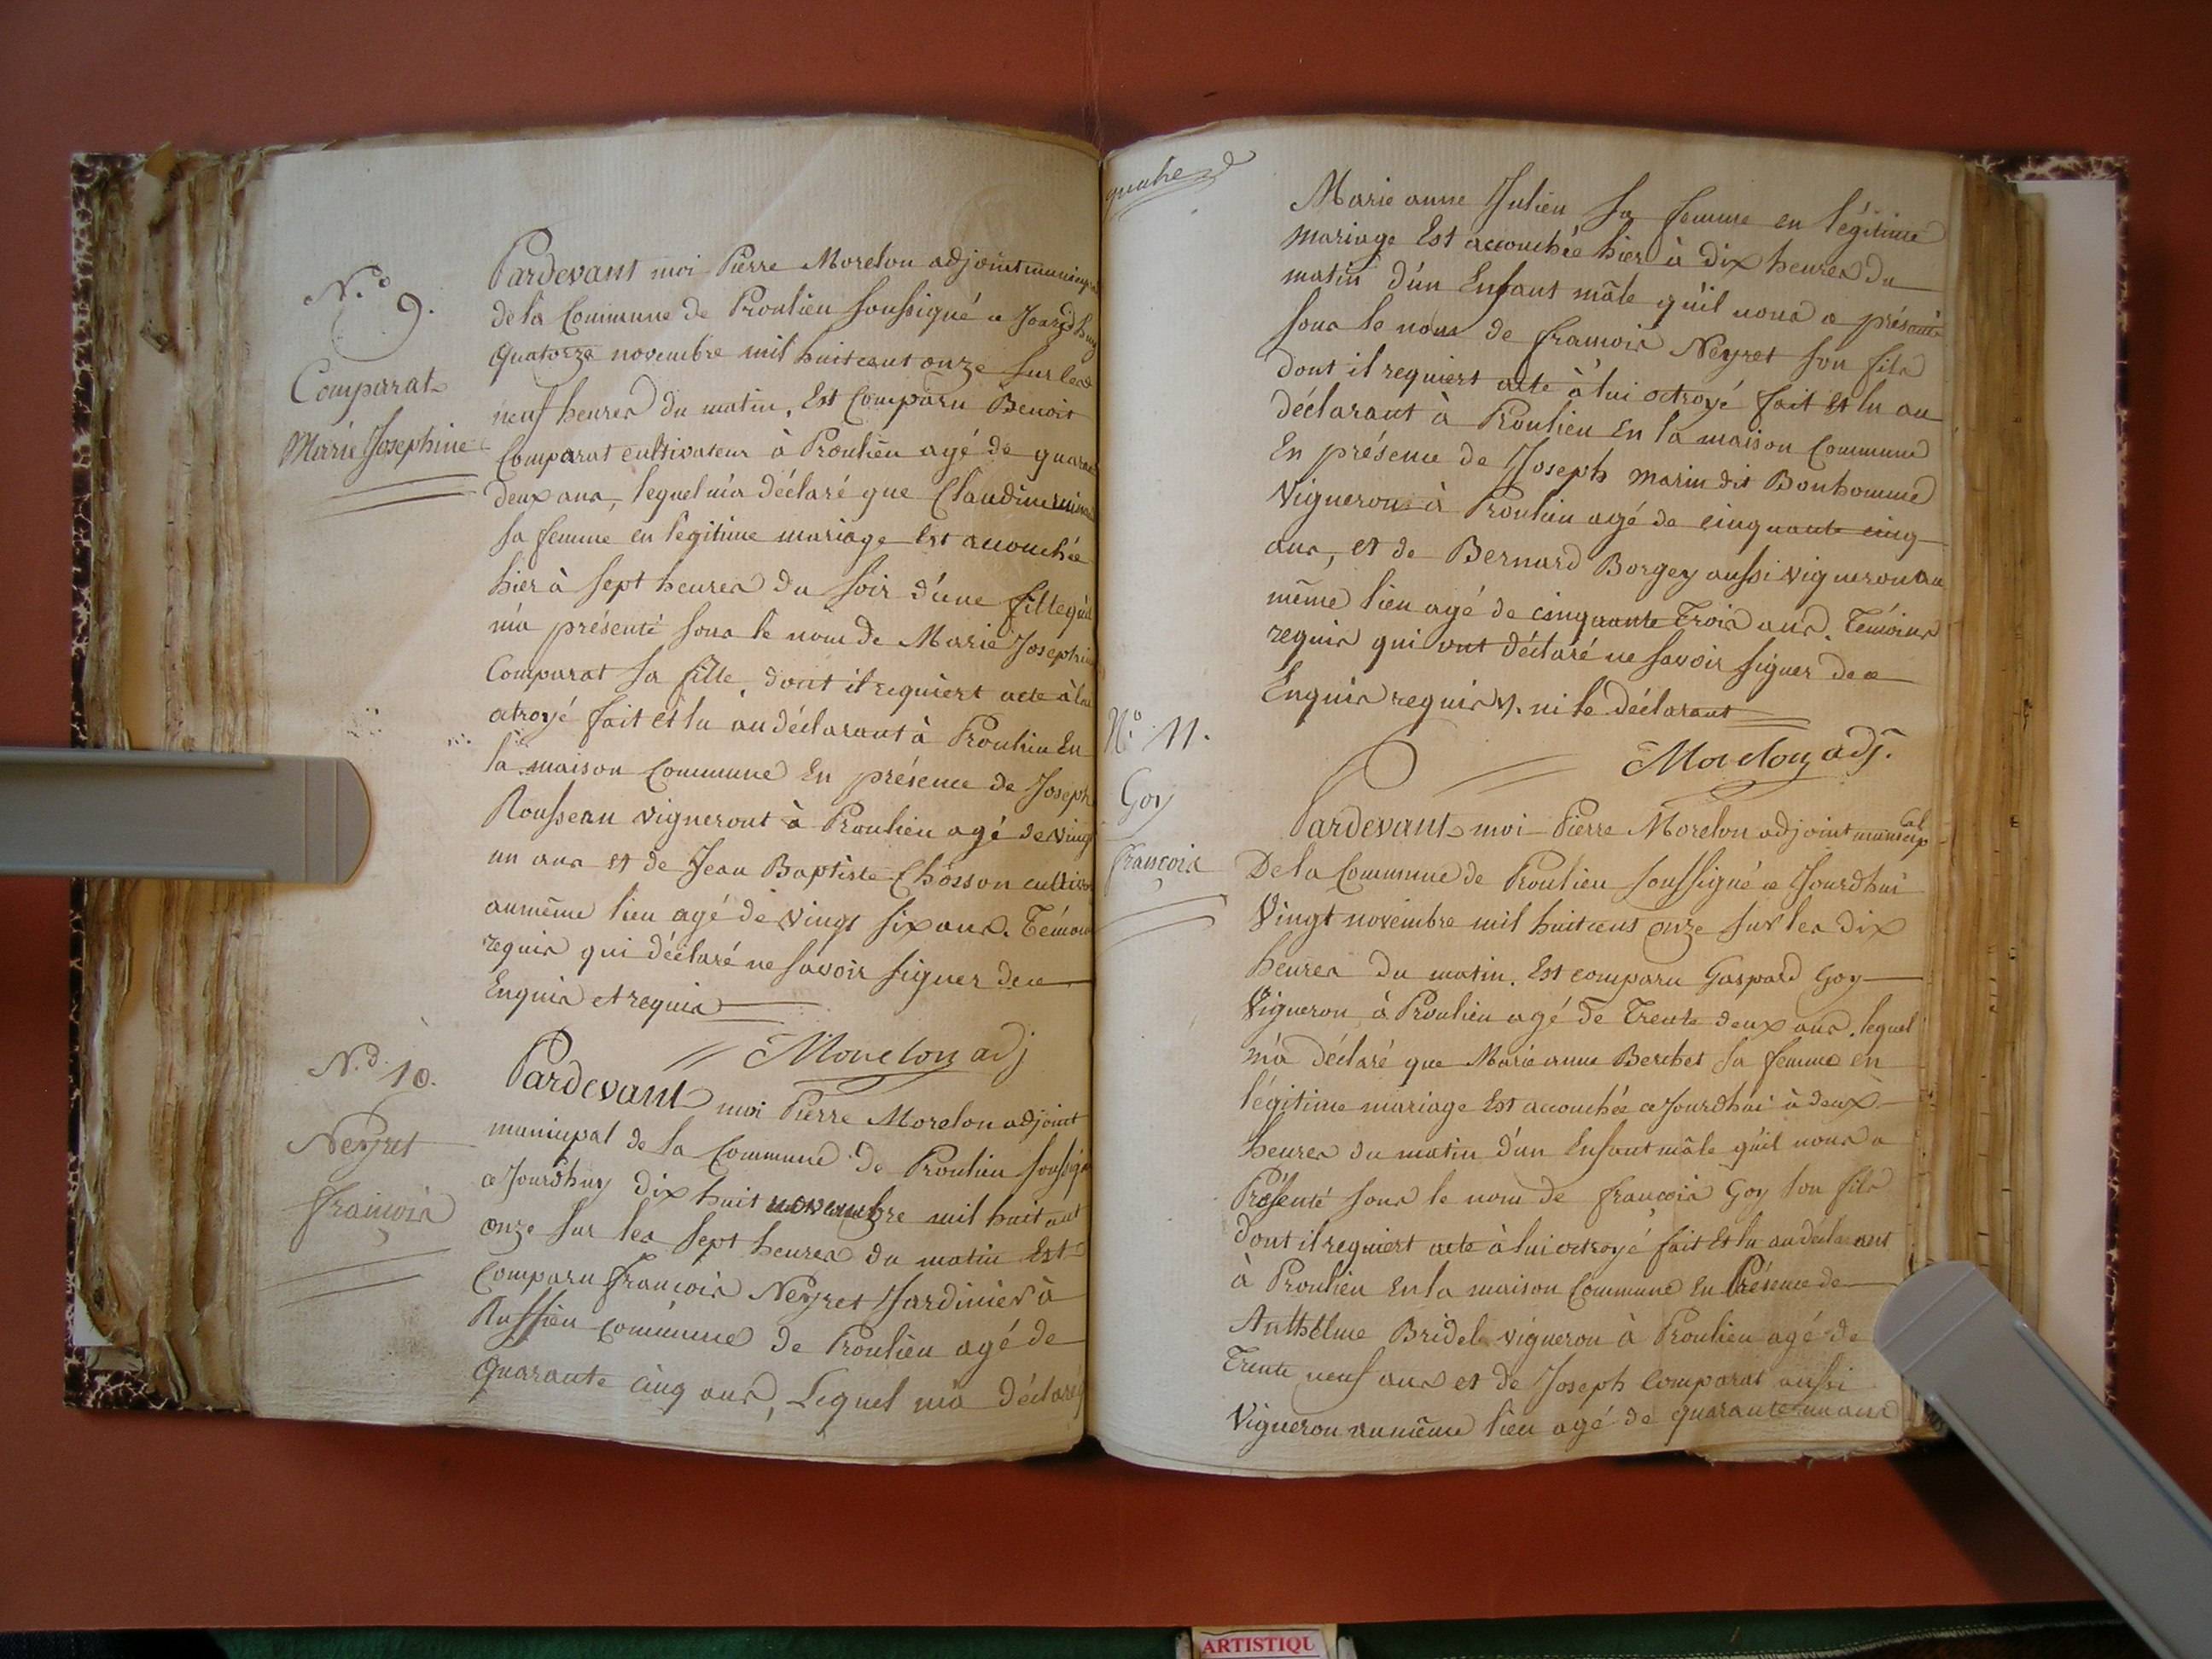 N.º 9.
Comparat
Marie Josephine
Pardevant moi Pierre Morelon adjoint municip
de la Commune de Proulieu soussigné ce Jourdhuy
quatorze novembre mil huit cent onze sur les
neuf heures du matin, Est Comparu Benoit
Comparat cultivateur à Proulieu agé de quarante
deux ans, lequel m'a déclaré que Claudine
sa femme en légitime mariage Est accouchée
hier à sept heures du soir d'une fille qu'il
m'a présenté sous le nom de Marie Josephine
Comparat sa fille, dont il requiert acte à lui
otroyé fait et lu au déclarant à Proulieu En
la maison Commune En présence de Joseph
Rousseau vigneront à Proulieu agé de vingt
un ans et de Jean Baptiste Chosson cultiva
au même lieu agé de vingt six ans. Témoins
requis qui déclaré ne savoir signer de ce
Enquis et requis
Morelon adj
N.º 10.
Neyret
francois
Pardevant moi Pierre Morelon adjoint
municipal de la Commune de Proulieu soussigé
ce Jourdhuy dix huit novembre mil huit cent
onze sur les sept heures du matin Est
Comparu francois Neyret Jardinier à
Russieu commune de Proulieu agé de
quarante cinq ans, Lequel m'a déclaré
quatre
Marie anne Julien sa femme en légitime
mariage Est accouchée hier à dix heures du
matin d'un Enfant mâle qu'il nous a présenté
sous le nom de francois Neyret son fils
dont il requiert acte à lui octroyé fait et lu au
déclarant à Proulieu En la maison Commune
En présence de Joseph marin dit Bonhomme
Vigneron à Proulieu agé de cinquante cinq
ans, et de Bernard Borgey aussi vigneron au
même lieu agé de cinquante Trois ans. Témoins
requis qui ont déclaré ne savoir signer de ce
Enquis requis. ni le déclarant
Morelon adj.
N.º 11.
Goy
françois
Pardevant moi Pierre Morelon adjoint municipal
De la Commune de Proulieu soussigné ce Jourdhui
Vingt novembre mil huit cens onze sur les dix
heures du matin. Est comparu Gaspard Goy
Vigneron à Proulieu agé de Trente deux ans. lequel
m'a déclaré que Marie anne Berchet sa femme en
légitime mariage Est accouchée ce Jourdhui à deux
heures du matin d'un Enfant mâle qu'il nous a
Présenté sous le nom de françois Goy son fils
dont il requiert acte à lui octroyé fait et lu au declarant
à Proulieu En la maison Commune en Présence de
Anthelme Bridel vigneron à Proulieu agé de
Trente neuf ans et de Joseph Comparat aussi
Vigneron au même lieu agé de quarante un ans
ARTISTIQU